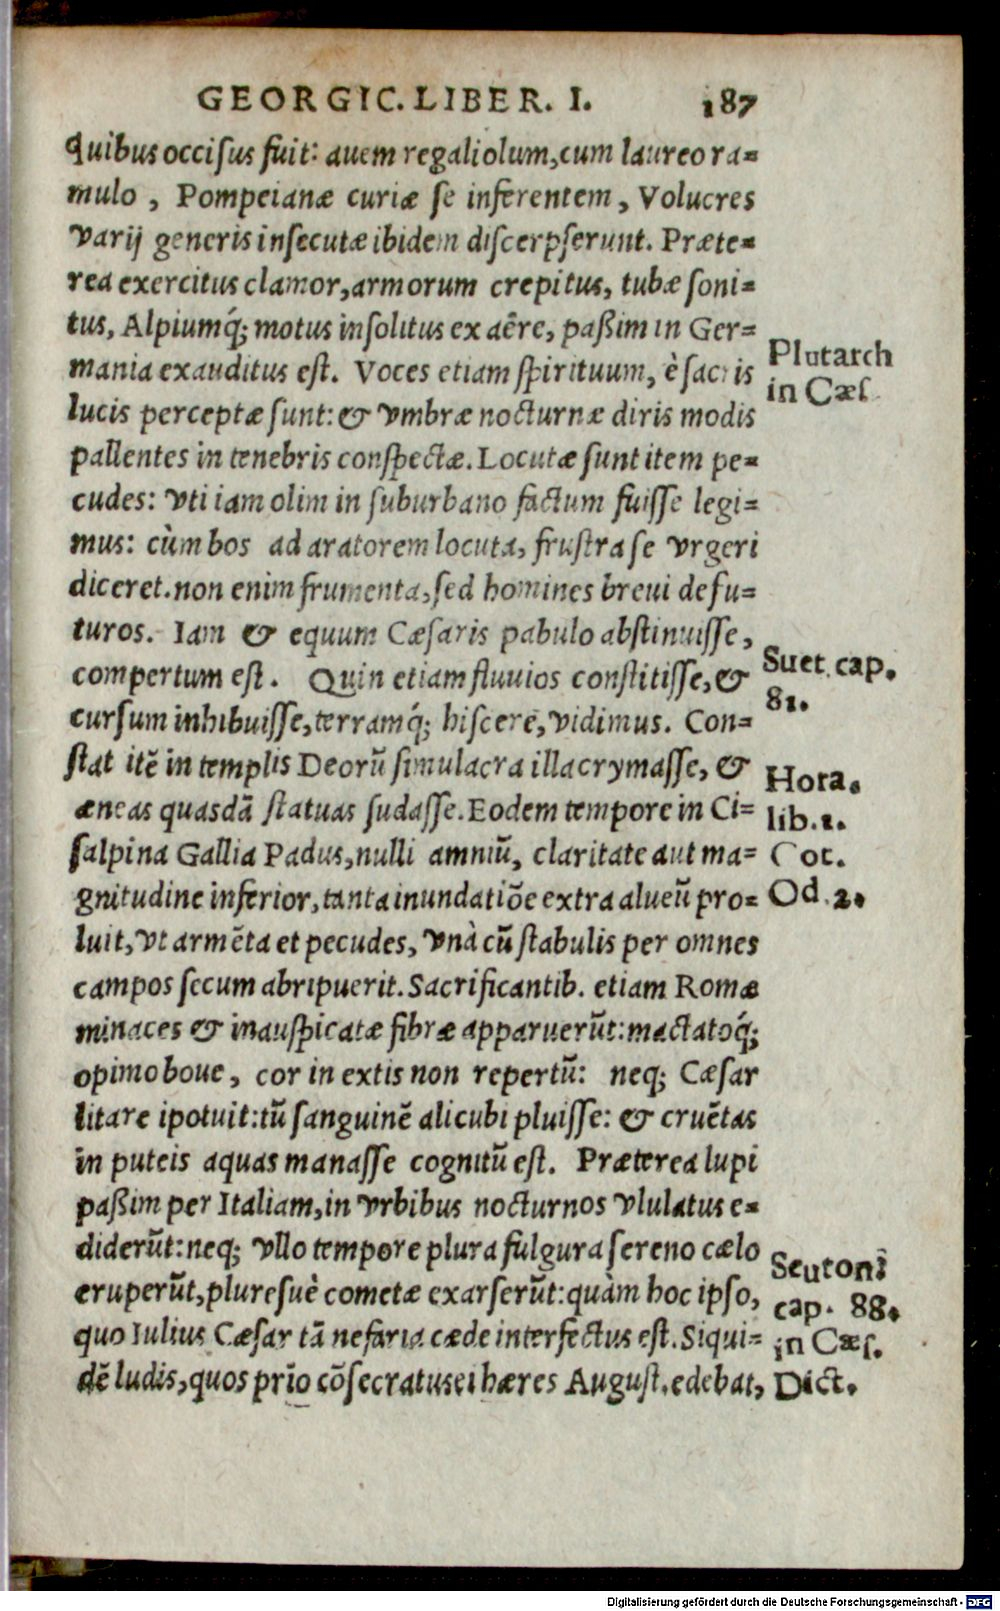 GEORGIC. LIBER. I. 187
Quibus occisus fuit: auem regaliolum, cum laureo ra=
mulo, Pompeianæ curiæ se inferentem, Volucres
varij generis insecutæ ibidem discerpserunt. Præte=
rea exercitus clamor, armorum crepitus, tubæ soni=
tus, Alpiumq́; motus insolitus ex aëre, paßim in Ger=
mania exauditus est. Voces etiam spirituum, è sacris
lucis perceptæ sunt: & vmbræ nocturnæ diris modis
pallentes in tenebris conspectæ. Locutæ sunt item pe=
cudes: vti iam olim in suburbano factum fuisse legi=
mus: cùm bos ad aratorem locuta, frustra se vrgeri
diceret. non enim frumenta, sed homines breui defu=
turos. Iam & equum Cæsaris pabulo abstinuisse,
compertum est. Quin etiam fluuios constitisse, &
cursum inhibuisse, terramq́; hiscere, vidimus. Con=
stat itẽ in templis Deorũ simulacra illacrymasse, &
æneas quasdã statuas sudasse. Eodem tempore in Ci=
salpina Gallia Padus, nulli amniũ, claritate aut ma=
gnitudine inferior, tanta inundatiõe extra alueũ pro=
luit, vt armẽta et pecudes, vnà cũ stabulis per omnes
campos secum abripuerit. Sacrificantib. etiam Romæ
minaces & inauspicatæ fibræ apparuerũt: mactatoq́;
opimo boue, cor in extis non repertũ: neq; Cæsar
litare ipotuit: tũ sanguinẽ alicubi pluisse: & cruẽtas
in puteis aquas manasse cognitũ est. Præterea lupi
paßim per Italiam, in vrbibus nocturnos vlulatus e=
diderũt: neq; vllo tempore plura fulgura sereno cælo
eruperũt, pluresuè cometæ exarserũt: quàm hoc ipso,
quo Iulius Cæsar tã nefaria cæde interfectus est. Siqui=
dẽ ludis, quos prĩo cõsecratus ei hæres August. edebat,
Plutarch
in Cæs.
Suet. cap.
81.
Hora.
lib. 1.
Coc.
Od. 2.
Seutonĩ
cap. 88.
in Cæs.
Dict.
Digitalisierung gefördert durch die Deutsche Forschungsgemeinschaft - DFG